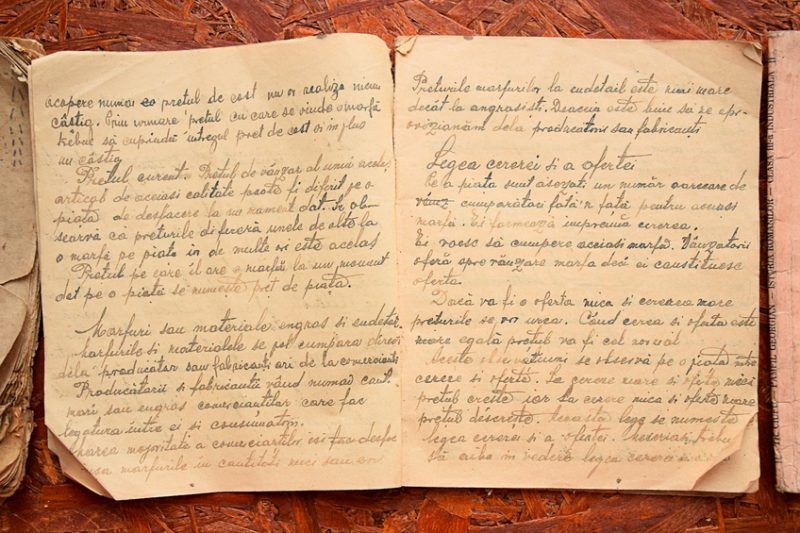 acopere numai cu pretul de cost nu va realiza niciun
câstig. Prin urmare pretul cu care se vinde o marfă
trebue să cuprindă intregul pret de cost si in plus
un câstig
Pretul curent. Pretul de vânzare al unui acelas
articol de aceiasi calitate poate fi diferit pe o
piata de desfacere la un moment dat. Se ob-
searvă ca preturile diferă unele de alte la
o marfă pe piata in de multe ori este acelas
Pretul pe care il are o marfă la un moment
dat pe o piată se numeste pret de piata.
Marfuri sau materiale engros si endetail.
Marfurile si materialele se pot cumpara direct
dela producator sau fabricanti ori de la comercianti
Producătorii si fabricantii vând numai cant.
mari sau engros comerciantilor care fac
legatura intre ei si consumatori.
marea majoritate a comerciantilor isi fac desfac
marfurile in cantitati mici sau en
Preturile marfurilor la endetail este mai mare
decât la angrosisti. Deaceia este bine să ne apro-
vizionăm dela producatori sau fabricanti
Legea cererei si a ofertei
Pe o piata sunt asezati un număr oarecare de
cumparători fată'n fată pentru aceiasi
marfă. Ei formează impreună cererea.
Ei voesc să cumpere aceiasi marfă. Vânzatorii
oferă spre vânzare marfa deci ei constituesc
oferta.
Dacă va fi o oferta mica si cererea mare
preturile se vor urca. Cand cerea si oferta este
mare egală pretul va fi cel normal
Aceste se observă pe o piata intre
cerere si ofertă. La cerere mare si oferta mica
pretul creste iar la cerere mica si ofertă mare
pretul descreste. Aceasta lege se numeste
legea cererei si a ofertei. trebue
să aibe in vedere legea cererei si a
PAMFIL GEORGIAN — ISTORIA ROMANILOR — CLASA III-a INDUSTRIALA